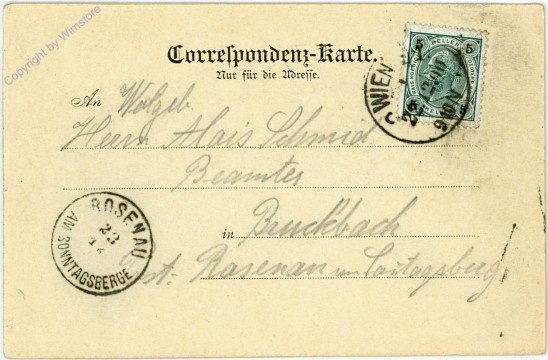 Copyright by Wimstore
Correspondenz-Karte.
Nur für die Adresse.
5 HELLER 5
WIEN
WIEN
An Wolgeb.
Herrn Alois Schmid
Beamter
in Bruckbach
Post. Rosenau am Sontagsberg
ROSENAU
23
12
AM SONNTAGSBERGE